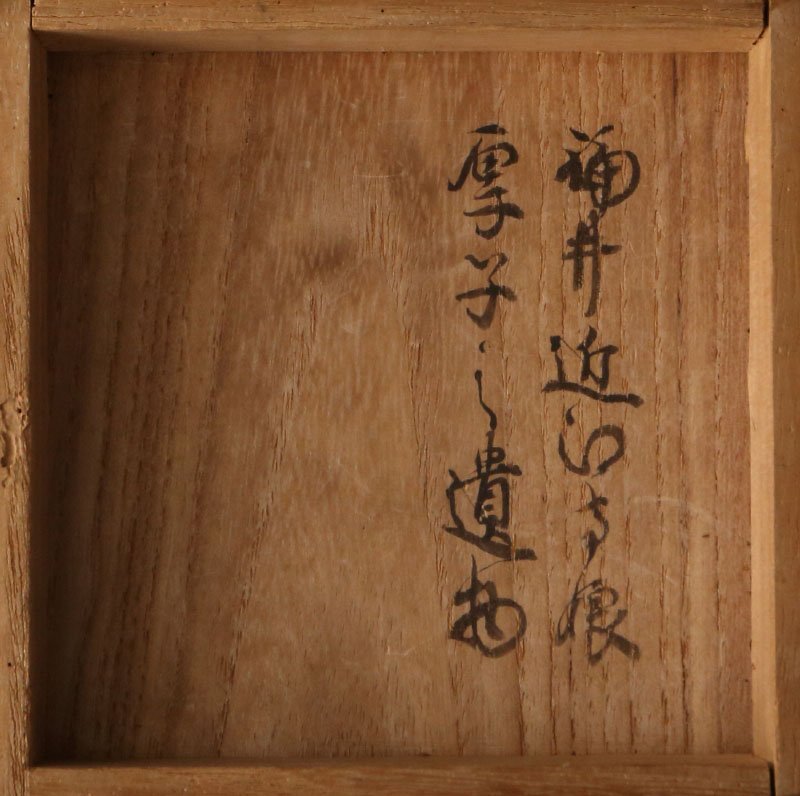 福井近江守娘
厚子之遺物